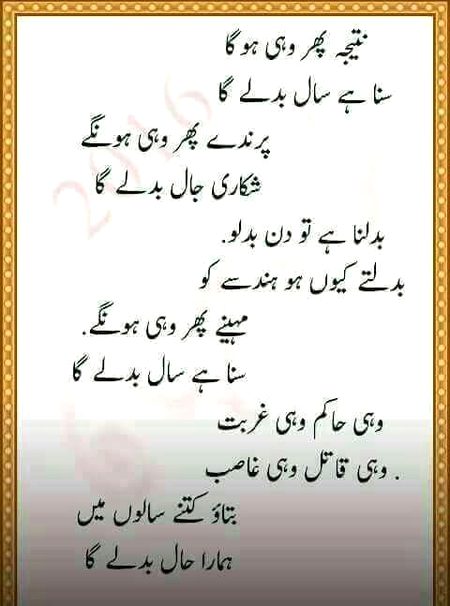 نتیجہ پھر وہی ہو گا
سنا ہے سال بدلے گا
پرندے پھر وہی ہونگے
شکاری جال بدلے گا
بدلنا ہے تو دن بدلو.
بدلتے کیوں ہو ہندسے کو
مہینے پھر وہی ہونگے.
سنا ہے سال بدلے گا
وہی حاکم وہی غربت
. وہی قاتل وہی غاصب
بتاؤ کتنے سالوں میں
ہمارا حال بدلے گا